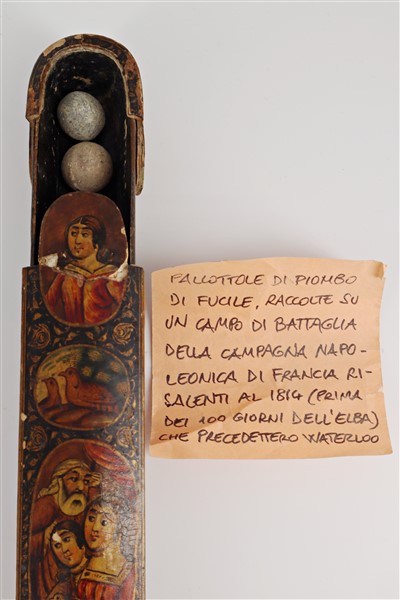 PALLOTTOLE DI PIOMBO
DI FUCILE, RACCOLTE SU
UN CAMPO DI BATTAGLIA
DELLA CAMPAGNA NAPO-
LEONICA DI FRANCIA RI-
SALENTI AL 1814 (PRIMA
DEI 100 GIORNI DELL'ELBA)
CHE PRECEDETTERO WATERLOO